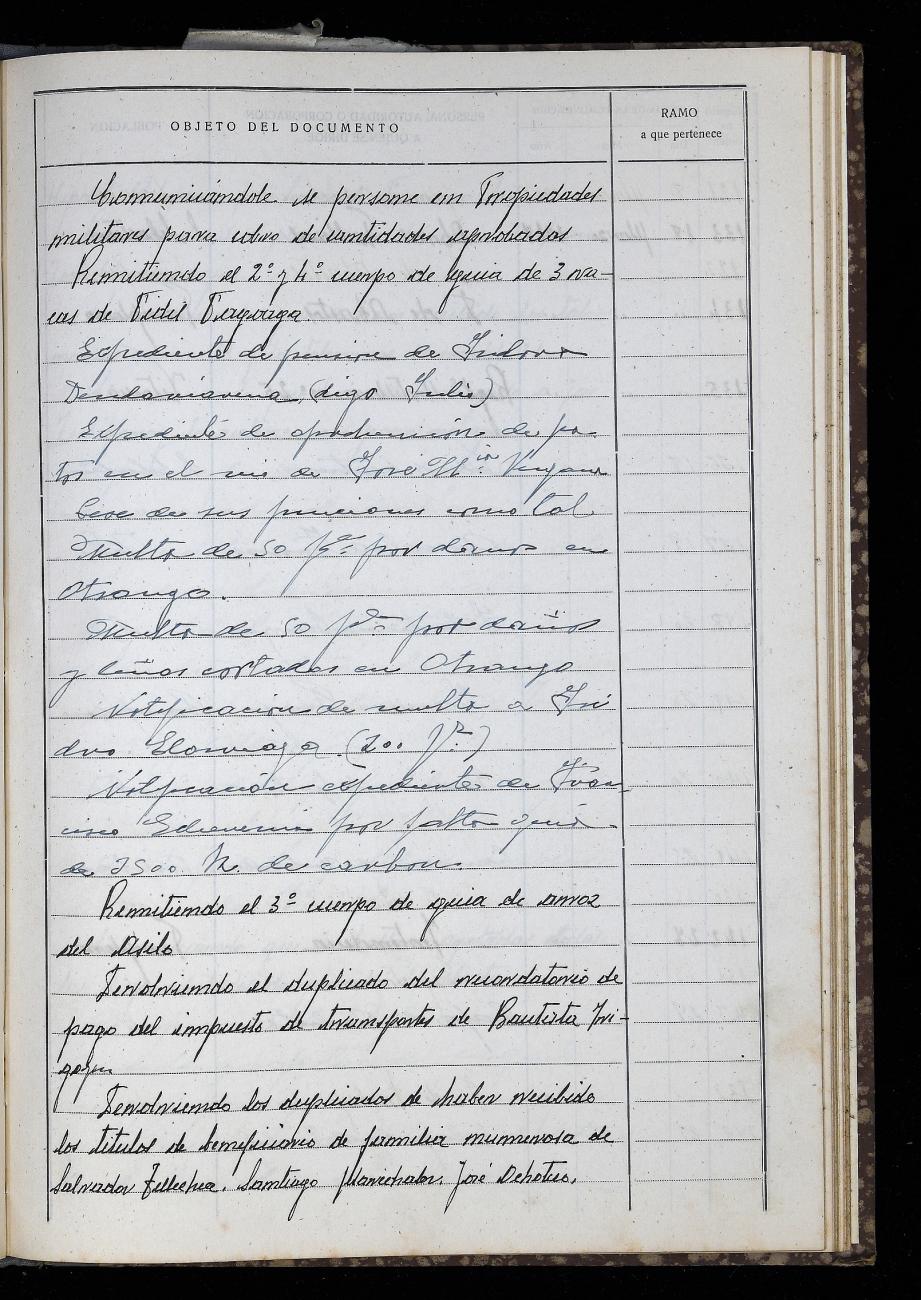 OBJETO DEL DOCUMENTO
RAMO
a que pertenece
Comunicándole se persone en Propiedades
militares para cobro de cantidades aprobadas
Remitiendo el 2º y 4º cuerpo de guia de 3 va-
cas de Fidel
Expediente de pension de Isidora
(digo Julio)
Expediente de de
en el de José Mª
Cese de sus funciones como tal
Multa de 50 pts por daños en
Otsango.
Multa de 50 pts por daños
y leños cortados en Otsango
Notificacion de multa a Isi
dro Elorriaga (200 pts)
Notificación expediente de Fran
cisco Echeverria por falta guia
de 2500 K. de carbon.
Remitiendo el 3º cuerpo de guia de arroz
del Asilo
Devolviendo el duplicado del recordatorio de
pago del impuesto de transportes de Bautista Iri-
goyen
Devolviendo los duplicados de haber recibido
los titulos de beneficiario de familia numerosa de
Salvador Tellechea. Santiago Marichalar. José